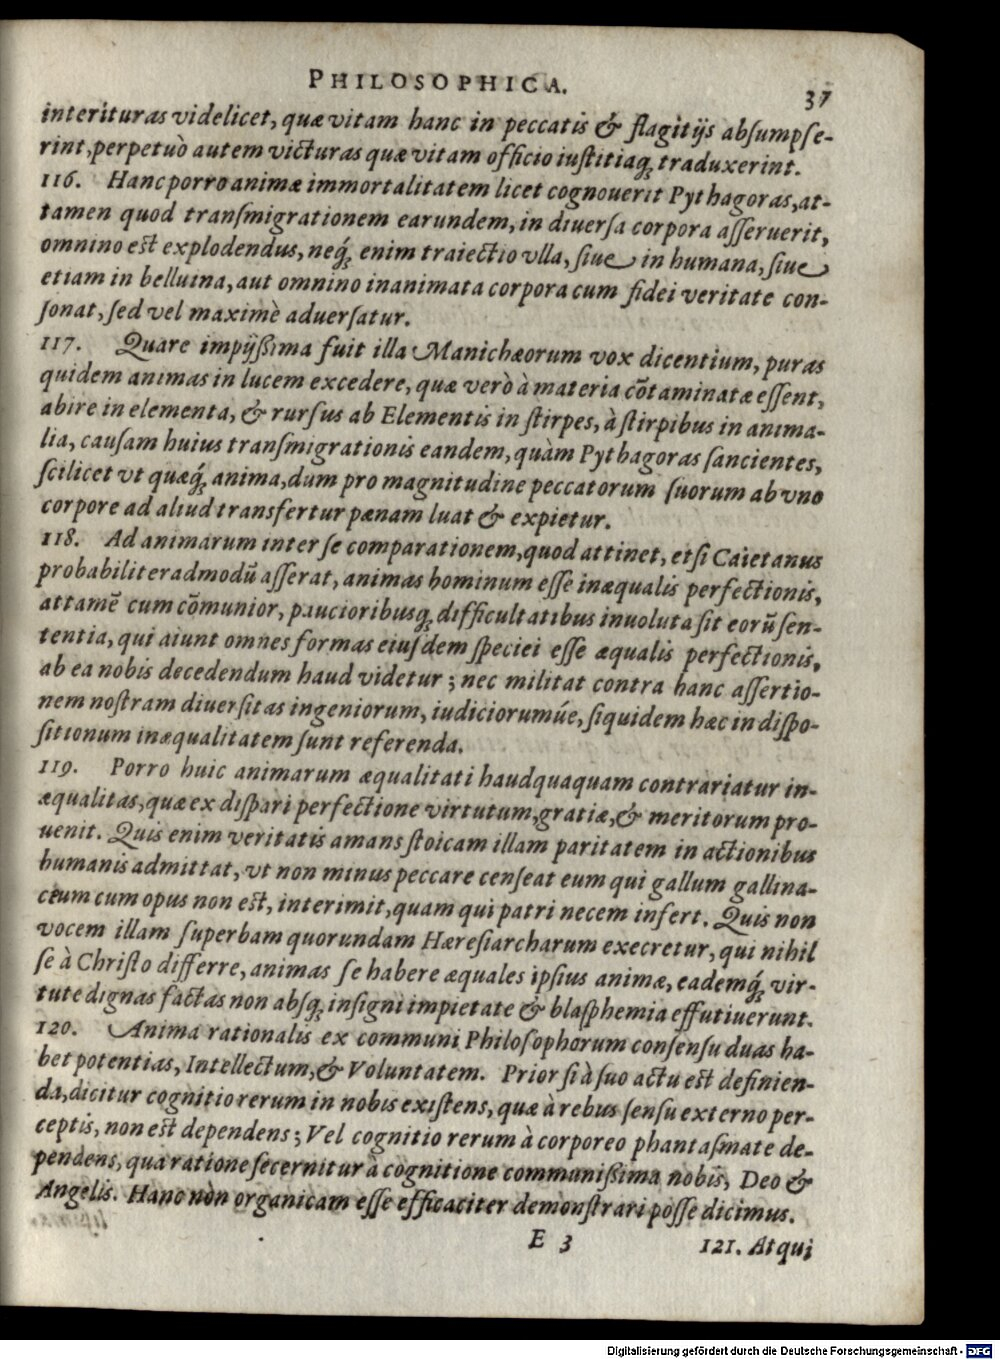 PHILOSOPHICA. 37
interituras videlicet, quæ vitam hanc in peccatis & flagitijs abſumpſe-
rint, perpetuò autem victuras quæ vitam officio iuſtitiaq́; traduxerint.
116. Hanc porro animæ immortalitatem licet cognouerit Pythagoras, at-
tamen quod tranſmigrationem earundem, in diuerſa corpora aſſeruerit,
omnino est explodendus, neq́; enim traiectio vlla, ſiue in humana, ſiue
etiam in belluina, aut omnino inanimata corpora cum fidei veritate con-
ſonat, ſed vel maximè aduerſatur.
117. Quare impijßima fuit illa Manichæorum vox dicentium, puras
quidem animas in lucem excedere, quæ verò à materia cõtaminatæ eſſent,
abire in elementa, & rurſus ab Elementis in ſtirpes, à ſtirpibus in anima-
lia, cauſam huius tranſmigrationis eandem, quàm Pythagoras ſancientes,
ſcilicet vt quæq́; anima, dum pro magnitudine peccatorum ſuorum ab vno
corpore ad aliud transfertur pænam luat & expietur.
118. Ad animarum inter ſe comparationem, quod attinet, etſi Caietanus
probabiliter admodū aſſerat, animas hominum eſſe inæqualis perfectionis,
attamē cum cōmunior, paucioribusq́; difficultatibus inuoluta ſit eorū ſen-
tentia, qui aiunt omnes formas eiuſdem ſpeciei eſſe æqualis perfectionis,
ab ea nobis decedendum haud videtur; nec militat contra hanc aſſertio-
nem noſtram diuerſitas ingeniorum, iudiciorumúe, ſiquidem hæc in diſpo-
ſitionum inæqualitatem ſunt referenda.
119. Porro huic animarum æqualitati haudquaquam contrariatur in-
æqualitas, quæ ex diſpari perfectione virtutum, gratiæ, & meritorum pro-
uenit. Quis enim veritatis amans ſtoicam illam paritatem in actionibus
humanis admittat, vt non minus peccare cenſeat eum qui gallum gallina-
ceum cum opus non est, interimit, quam qui patri necem infert. Quis non
vocem illam ſuperbam quorundam Hæreſiarcharum execretur, qui nihil
ſe à Chriſto differre, animas ſe habere æquales ipſius animæ, eademq́; vir-
tute dignas factas non abſq́; inſigni impietate & blaſphemia effutiuerunt.
120. Anima rationalis ex communi Philoſophorum conſenſu duas ha-
bet potentias, Intellectum, & Voluntatem. Prior ſi à ſuo actu est definien-
da, dicitur cognitio rerum in nobis exiſtens, quæ à rebus ſenſu externo per-
ceptis, non est dependens; Vel cognitio rerum à corporeo phantaſmate de-
pendens, qua ratione ſecernitur à cognitione communißima nobis, Deo &
Angelis. Hanc non organicam eſſe efficaciter demonſtrari poſſe dicimus.
E 3 121. Atqui
Digitalisierung gefördert durch die Deutsche Forschungsgemeinschaft - DFG